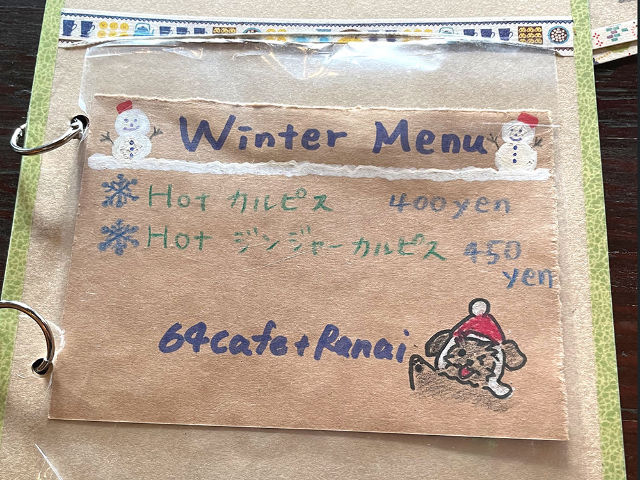 Winter Menu
Hot カルピス 400yen
Hot ジンジャーカルピス 450
yen
64cafe+Ranai